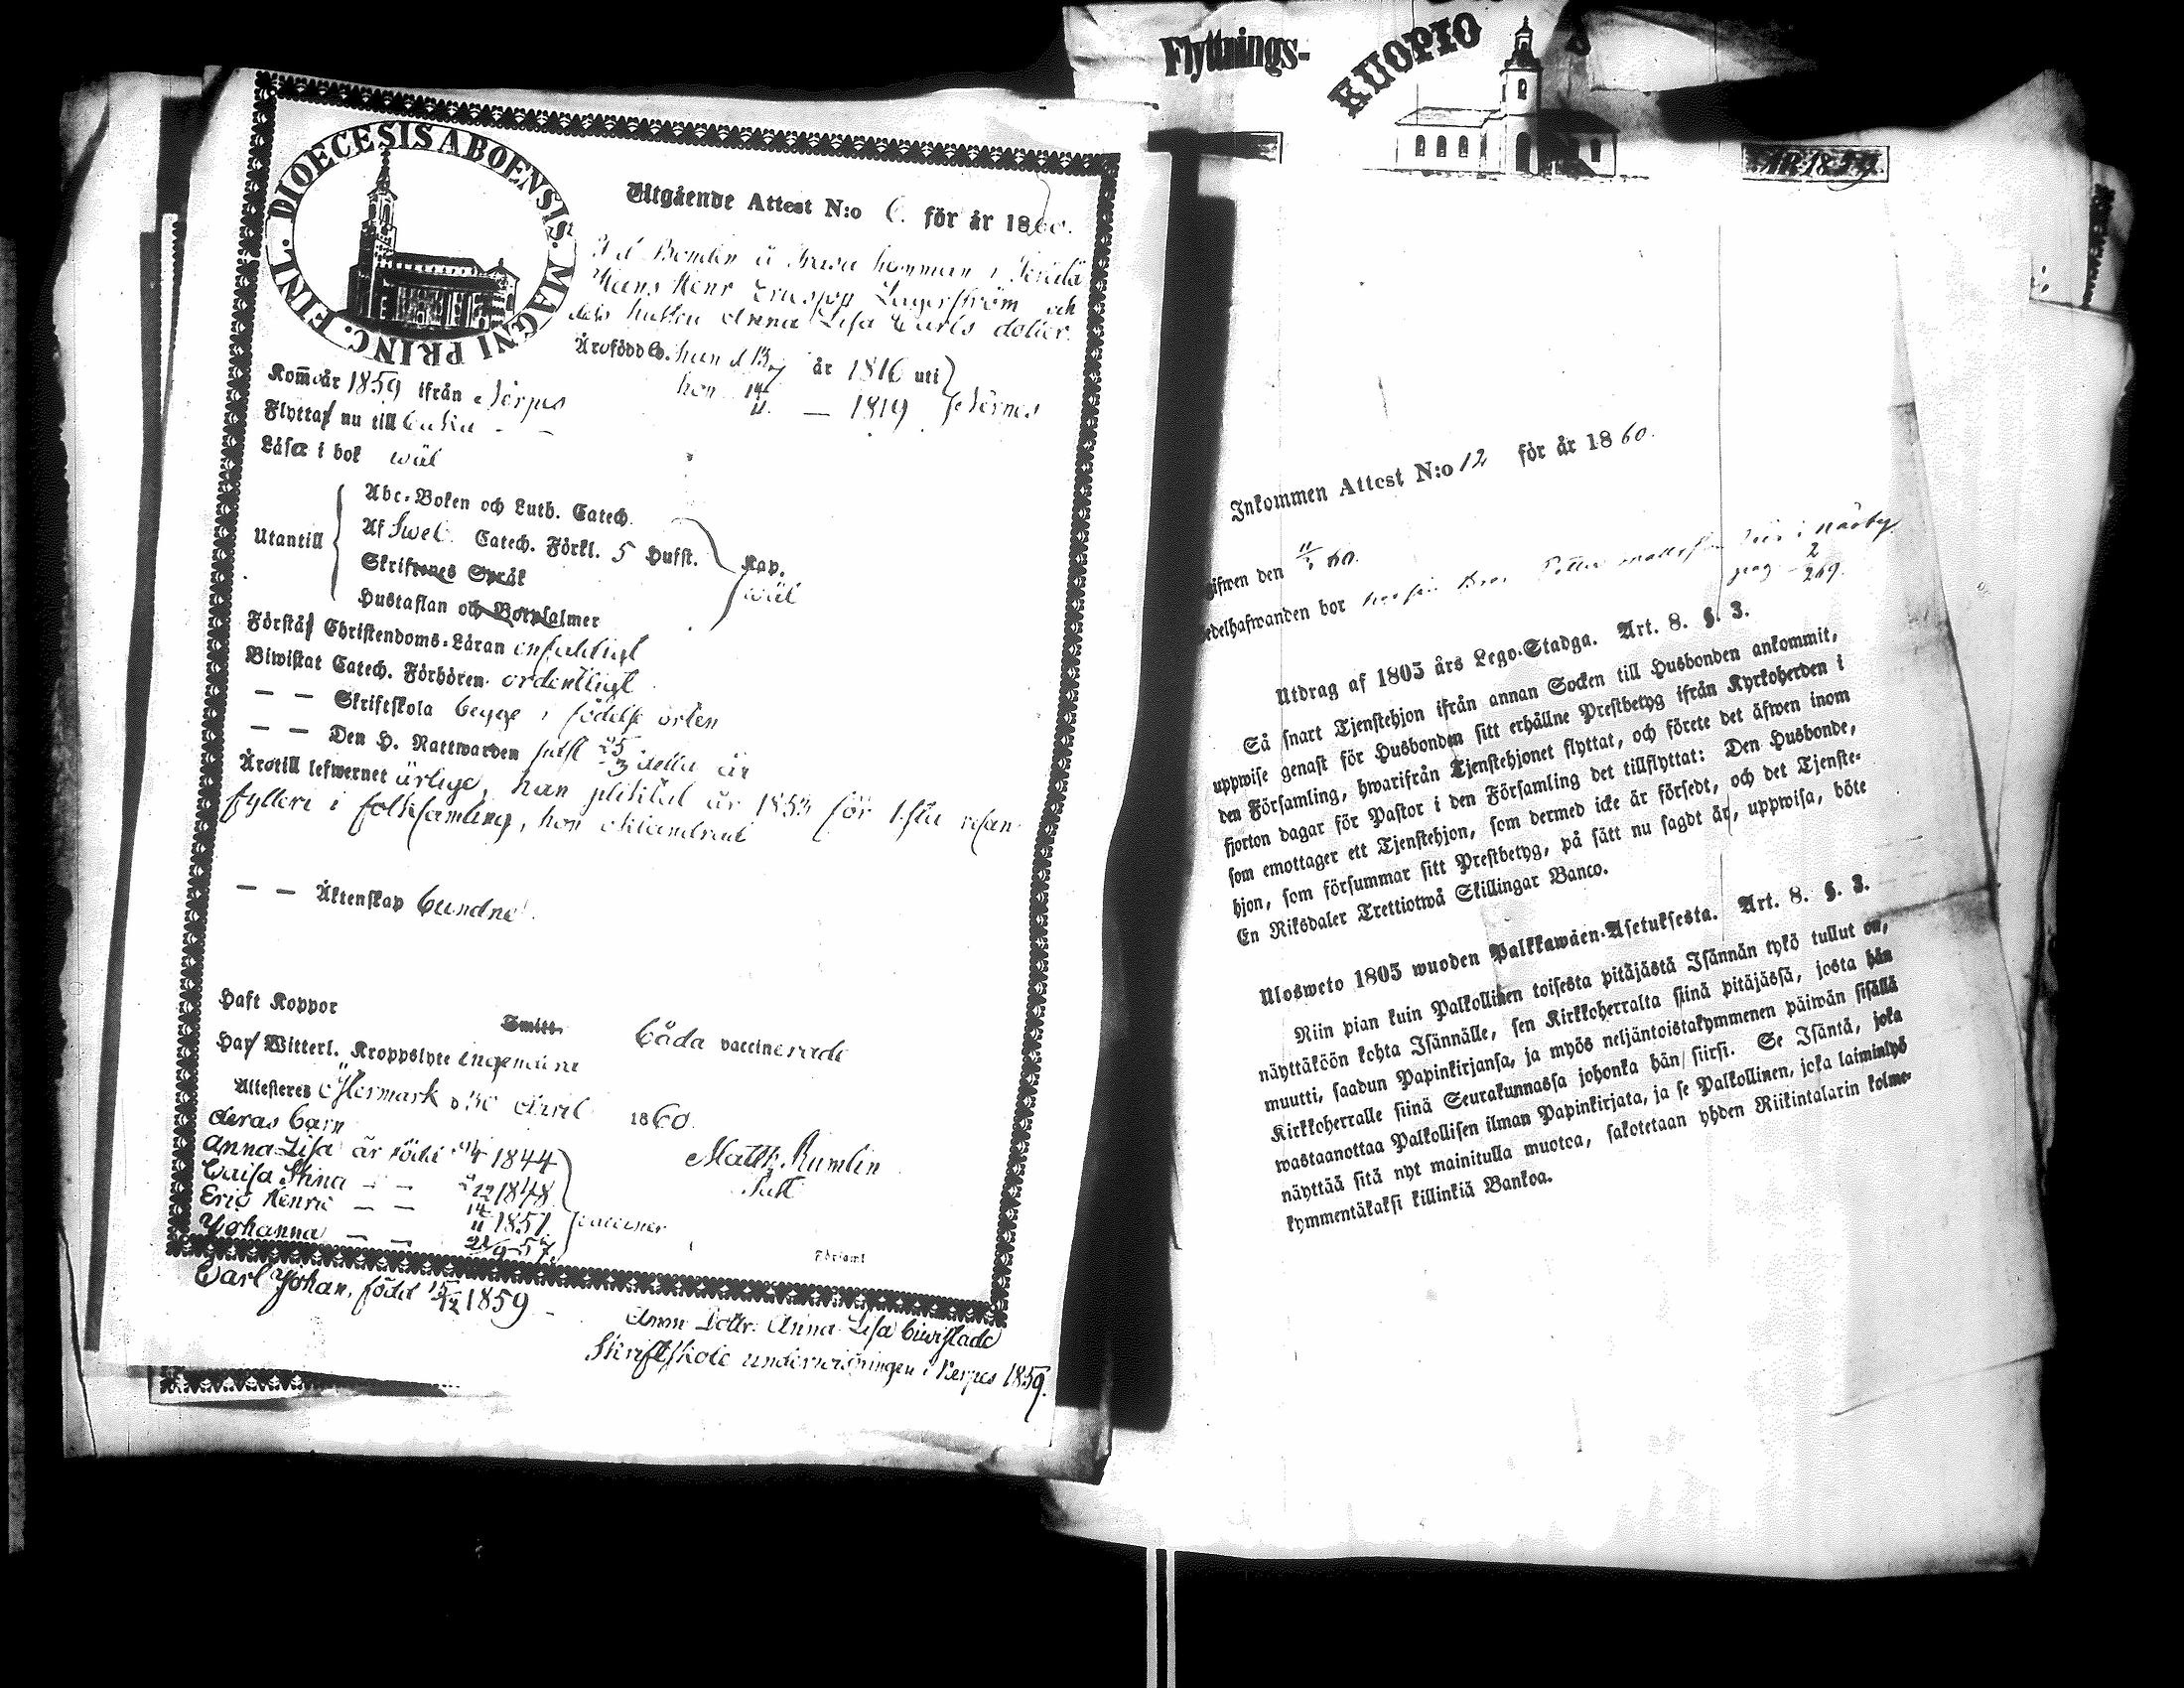 FINL. DIOECESIS ABOENSIS. MAGNI PRINC.
Utgående Attest N:o 6. för år 1860.
F d Bonden å hemman i
Hans Henr Ersson Lagerström och
dess hustru Anna Lisa Carls dotter.
Äro födde. han d 13/7 år 1816 uti
hon 14/11 — 1819 Nerpes
Kom år 1859 ifrån Nerpes
Flyttar nu till
Läsa i bok wäl
Utantill
Abc-Boken och Luth. Catech.
Af Swel. Catech. Förkl. 5 Hufst. Kap.
wäl
Skriftenes Språk
Hustaflan och Botpsalmer
Förstår Christendoms-Läran enfaldigt
Biwistat Catech. Förhören ordentligt
— — Skriftskola begge i födelse orten
— — Den H. Nattwarden sist 25/3 detta år
Äro till lefwernet ärlige, han pliktat år 1853 för 1sta resan
fylleri i folksamling, hon oklandrad
— — Äktenskap bundne.
Haft Koppor
Smitt.
båda vaccinerade
Har Witterl. Kroppslyte ingendera
Attesteras Östermark d 30 April 1860.
deras barn
Anna Lisa är född 1844
Caisa Stina — — 1848
Eric Henric — — 14/11 1851
Johanna — — 21/9 57.
vacciner
Matth. Rumlin
Församl
Carl Johan, född 15/12 1859 —
Anm. Dottr. Anna Lisa biwistade
Skriftskole underwisningen i Nerpes 1859.
Flyttnings-
KUOPIO
ÅR 1859.
Inkommen Attest N:o 12 för år 1860.
gifwen den 11/5 60.
edelhafwanden bor hos sin Bror Petter Mattsson i Närby
pag 2/269.
Utdrag af 1805 års Lego-Stadga. Art. 8. §. 3.
Så snart Tjenstehjon ifrån annan Socken till Husbonden ankommit,
uppwise genast för Husbonden sitt erhållne Prestbetyg ifrån Kyrkoherden i
den Församling, hwarifrån Tjenstehjonet flyttat, och förete det äfwen inom
fjorton dagar för Pastor i den Församling det tillflyttat: Den Husbonde,
som emottager ett Tjenstehjon, som dermed icke är försedt, och det Tjenste-
hjon, som försummar sitt Prestbetyg, på sätt nu sagdt är, uppwisa, böte
En Riksdaler Trettiotwå Skillingar Banco.
Ulosweto 1805 wuoden Palkkawäen-Asetuksesta. Art. 8. §. 3.
Niin pian kuin Palkollinen toisesta pitäjästä Isännän tykö tullut on,
näyttäköön kohta Isännälle, sen Kirkkoherralta siinä pitäjässä, josta hän
muutti, saadun Papinkirjansa, ja myös neljäntoistakymmenen päiwän sisällä
Kirkkoherralle siinä Seurakunnassa johonka hän siirsi. Se Isäntä, joka
wastaanottaa Palkollisen ilman Papinkirjata, ja se Palkollinen, joka laiminlyö
näyttää sitä nyt mainitulla muotoa, sakotetaan yhden Riikintalarin kolme-
kymmentäkaksi killinkiä Bankoa.